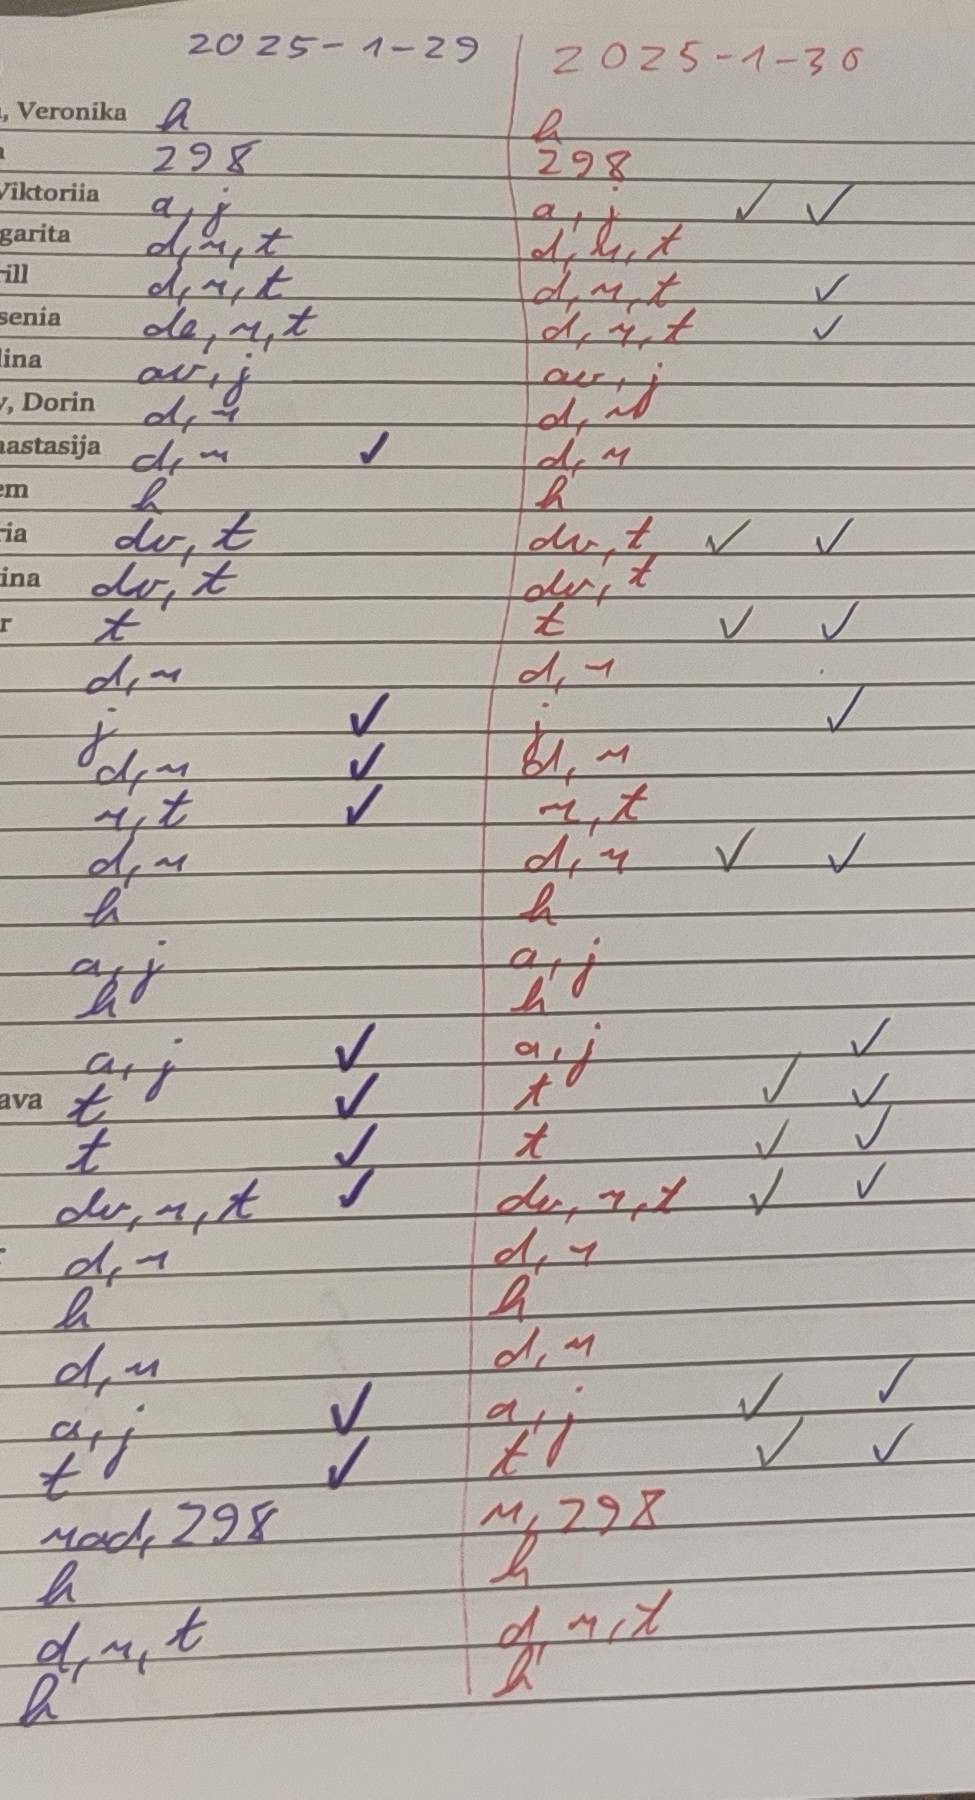 2025-1-29 2025-1-30
, Veronika h h
a 298 298
Viktoriia a, j a, j ✓ ✓
garita d, n, t d, n, t
rill d, n, t d, n, t ✓
senia de, n, t d, n, t ✓
lina av, j av, j
v, Dorin d, n d, n
nastasija d, n ✓ d, n
em h h
ria dv, t dv, t ✓ ✓
ina dv, t dv, t
r t t ✓ ✓
d, n d, n
j ✓ j ✓
d, n ✓ d, n
n, t ✓ n, t
d, n d, n ✓ ✓
h h
a, j a, j
h h
a, j ✓ a, j ✓
ava t ✓ t ✓ ✓
t ✓ t ✓ ✓
dv, n, t ✓ dv, n, t ✓ ✓
d, n d, n
h h
d, n d, n
a, j ✓ a, j ✓ ✓
t ✓ t ✓ ✓
nad, 298 n, 298
h h
d, n, t d, n, t
h h